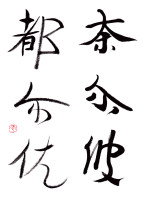 奈尓波
都尓佐